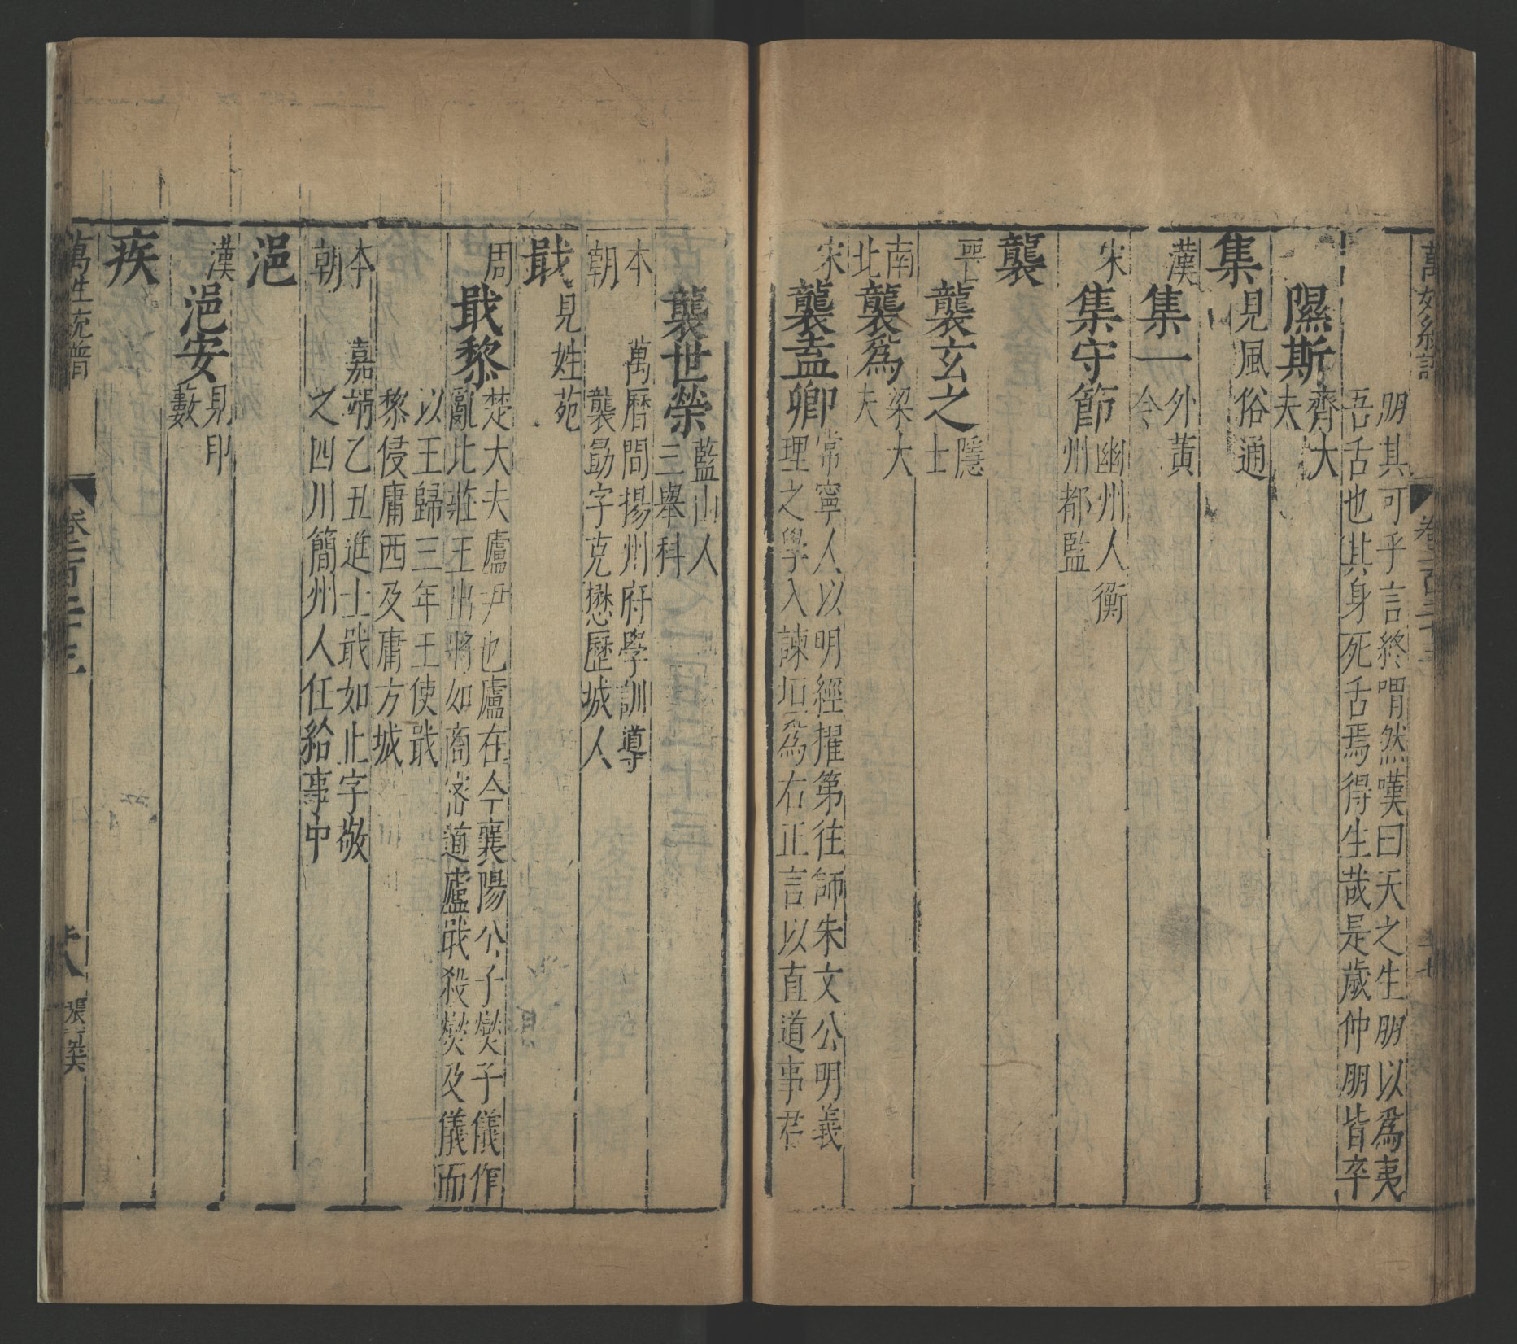 朋其可乎言終喟然嘆曰天之生朋以爲夷
吾舌也其身死舌焉得生哉是歲仲朋皆卒
隰斯齊大
夫
集見風俗通
漢集一外黃
令
宋集守節幽州人衡
州都監
襲
晉襲玄之隱
士
南襲爲梁大
北夫
宋襲盖卿常寧人以明經擢第往師朱文公明義
理之學入諫垣爲右正言以直道事君
襲世榮藍山人
三舉科
本萬曆間揚州府學訓導
朝襲勗字克懋歷城人
戢見姓苑
周戢黎楚大夫廬尹也廬在今襄陽公子燮子儀作
亂此莊王出將如商密道廬戢殺燮及儀而
以王歸三年王使戢
黎侵庸西及庸方城
本嘉靖乙丑進士戢如止字敬
朝之四川簡州人任給事中
浥
漢浥安見印
藪
疾
萬姓統譜
卷一百二十三